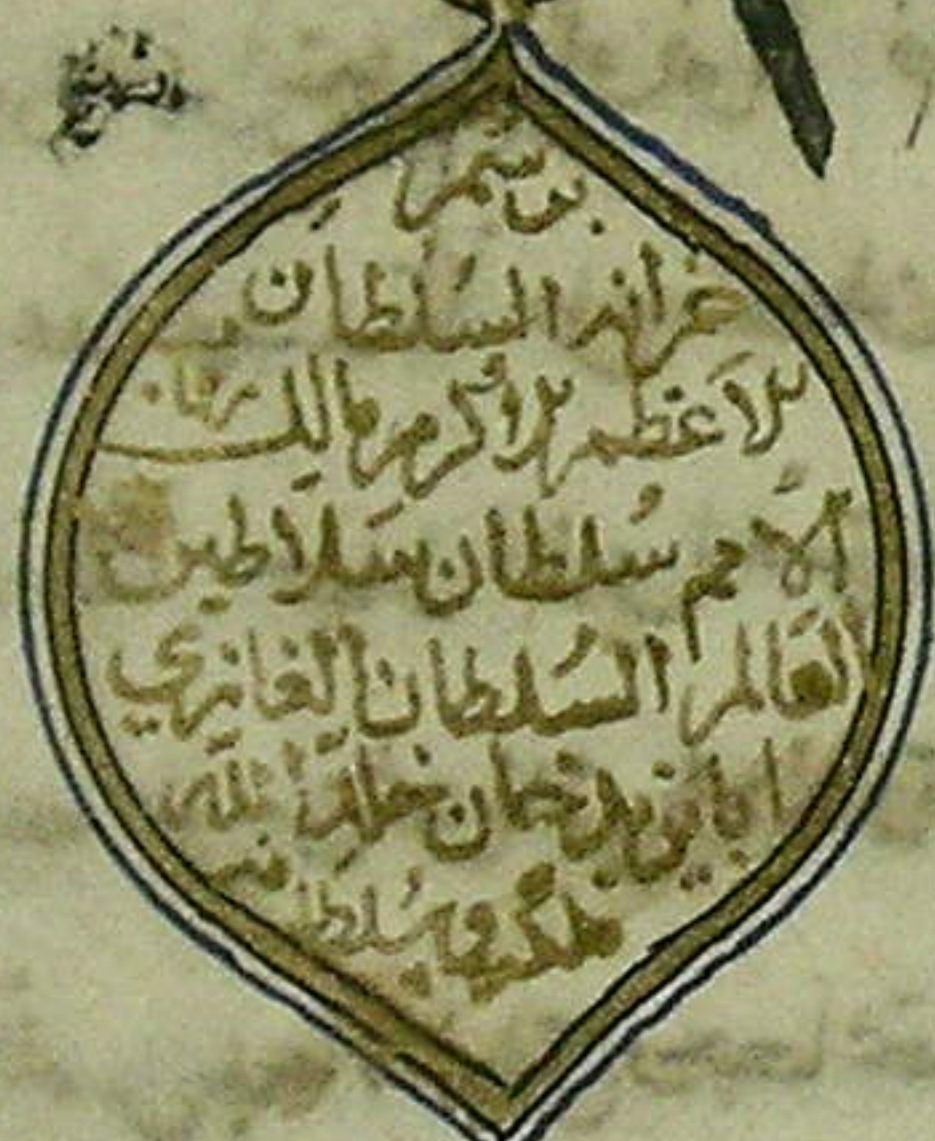 برسم
خزانة السلطان
الاعظم الاكرم مالك رقاب
الامم سلطان سلاطين
العالم السلطان الغازي
بايزيد خان خلد الله
ملكه وسلطانه